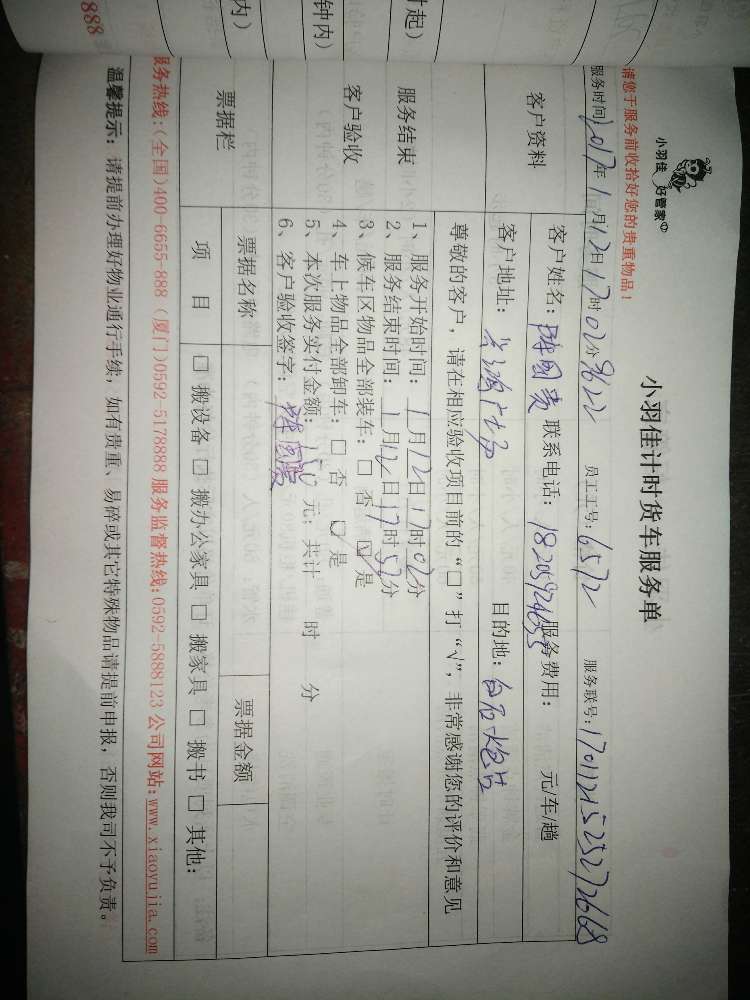 888
时起）
钟内）
内）
请您于服务前收拾好您的贵重物品！
小羽佳 好管家
小羽佳计时货车服务单
服务时间 2017年1月12日17时02分 员工工号: 6572 服务联号: 1701121525272668
客户资料
客户姓名: 联系电话: 服务费用: 元/车/趟
客户地址: 目的地: 白石炮台
服务结束
客户验收
尊敬的客户，请在相应验收项目前的“□”打“√”，非常感谢您的评价和意见
1、服务开始时间: 1月12日17时02分
2、服务结束时间: 1月12日17时52分
3、候车区物品全部装车: □ 否 □ 是
4、车上物品全部卸车: □ 否 □ 是
5、本次服务实付金额: 150 元; 共计 时 分
6、客户验收签字:
票据栏 票据名称 票据金额
项 目 □ 搬设备 □ 搬办公家具 □ 搬家具 □ 搬书 □ 其他:
服务热线:(全国)400-6655-888 (厦门)0592-5178888 服务监督热线:0592-5888123 公司网站:www.xiaoyujia.com
温馨提示: 请提前办理好物业通行手续，如有贵重、易碎或其它特殊物品请提前申报，否则我司不予负责。